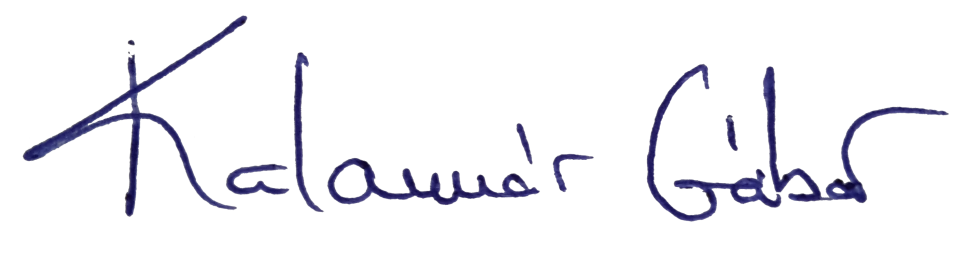 Kalamár Gábor